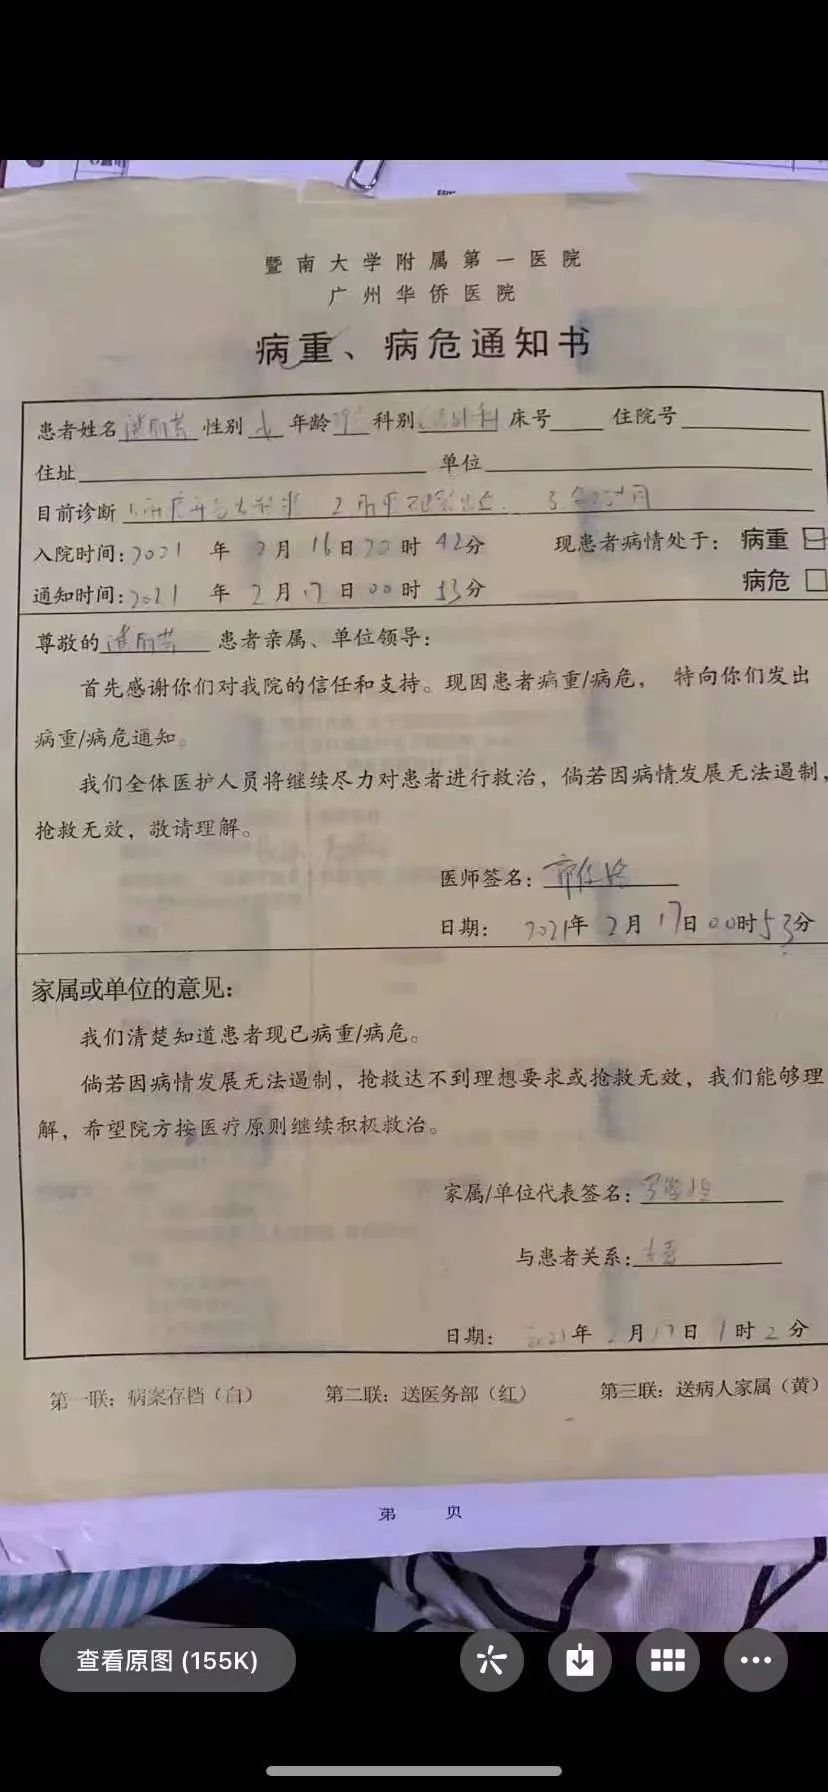 暨南大学附属第一医院
广州华侨医院
病重、病危通知书
患者姓名 性别 年龄 科别 床号 住院号
住址 单位
目前诊断
入院时间:2021年2月16日20时42分 现患者病情处于: 病重
通知时间:2021年2月17日00时53分 病危
尊敬的 患者亲属、单位领导:
首先感谢你们对我院的信任和支持。现因患者病重/病危, 特向你们发出
病重/病危通知。
我们全体医护人员将继续尽力对患者进行救治,倘若因病情发展无法遏制,
抢救无效,敬请理解。
医师签名:
日期: 2021年2月17日00时53分
家属或单位的意见:
我们清楚知道患者现已病重/病危。
倘若因病情发展无法遏制,抢救达不到理想要求或抢救无效,我们能够理
解,希望院方按医疗原则继续积极救治。
家属/单位代表签名:
与患者关系:
日期: 2021年2月17日1时2分
第一联:病案存档(白) 第二联:送医务部(红) 第三联:送病人家属(黄)
第 页
查看原图 (155K)